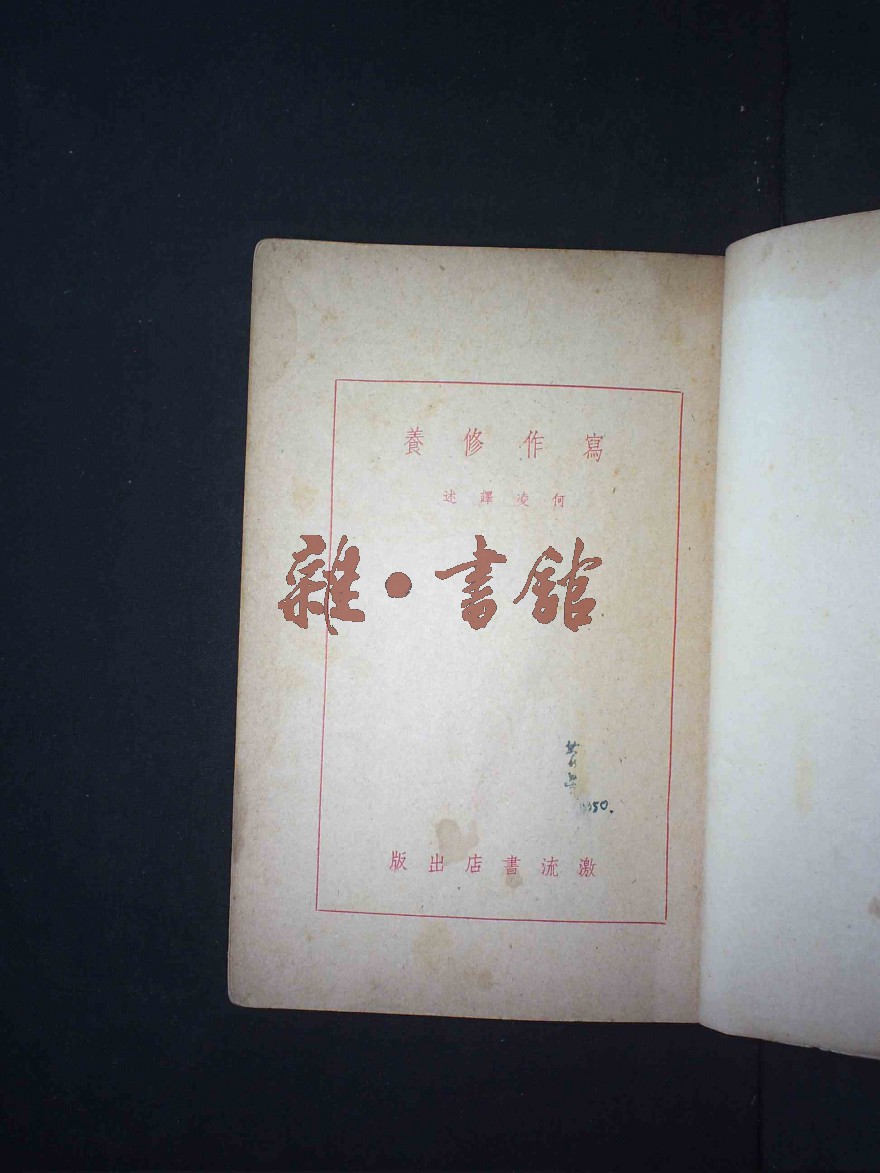 寫作修養
何凌譯述
雜·書館
1950.
激流書店出版